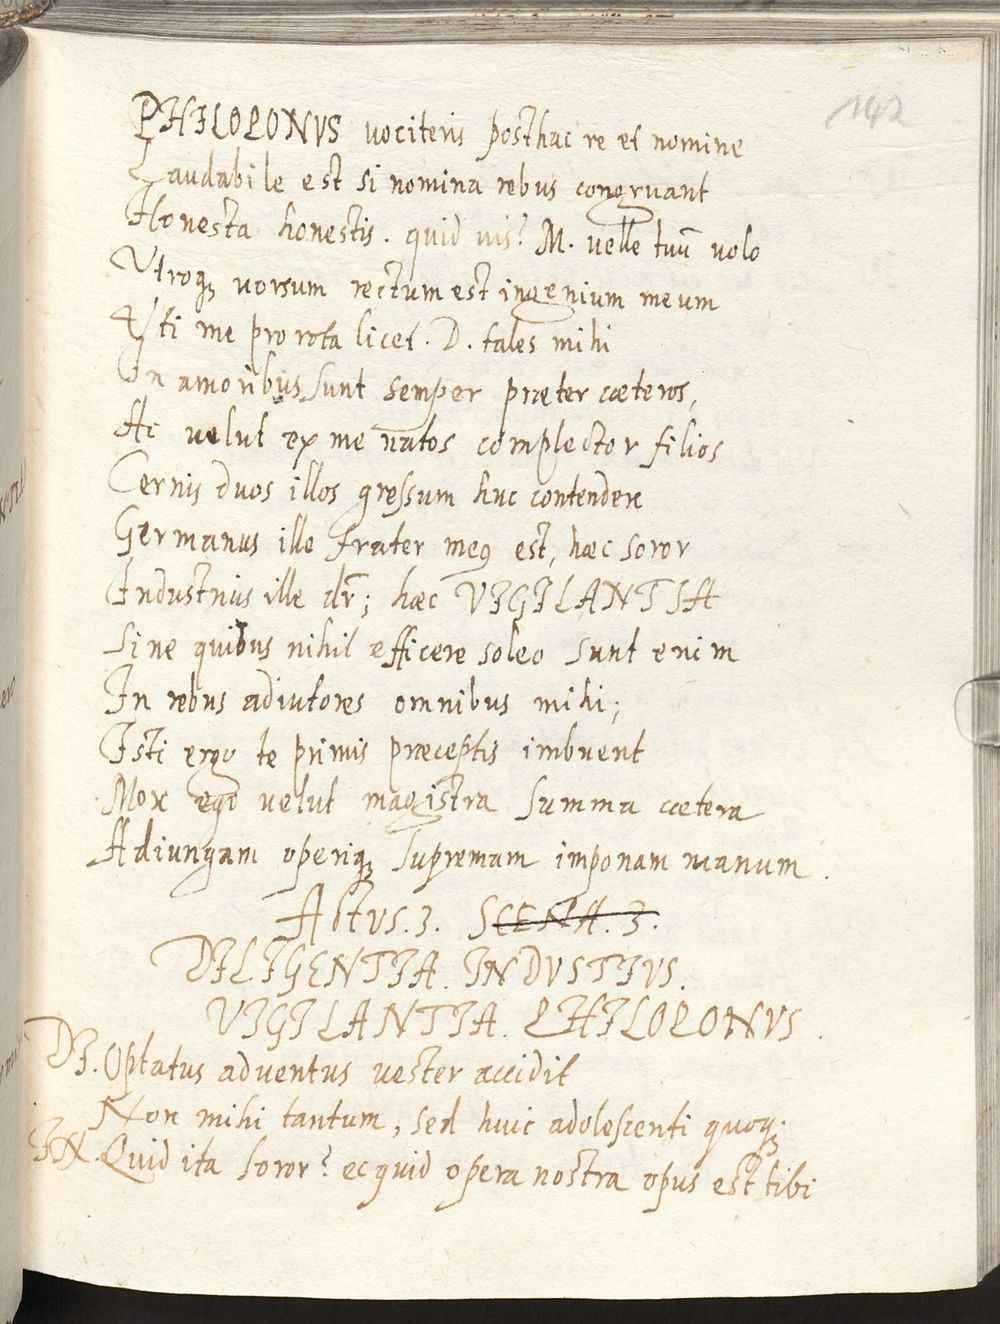 192
PHILOPONVS vociteris posthac re et nomine
Laudabile est si nomina rebus congruant
Honesta honestis. quid vis? M. velle tuū volo
Vtroqꝫ vorsum rectum est ingenium meum
Vsti me pro rota licet. D. tales mihi
In amoribus sunt semper præter cæteros,
Ac velut ex me natos complector filios
Cernis duos illos gressum huc contendere
Germanus ille frater meꝯ est, hæc soror
Industrius ille dr̄; hæc VIGILANTIA
Sine quibus nihil efficere soleo sunt enim
In rebus adiutores omnibus mihi;
Isti ergo te primis præceptis imbuent
Mox ego velut magistra summa cætera
Adiungam operiqꝫ supremam imponam manum.
ACTVS. 3. SCENA. 3.
DILIGENTIA. INDVSTIVS.
VIGILANTIA. PHILOPONVS.
DI. Optatus adventus vester accidit
Non mihi tantum, sed huic adolescenti quoqꝫ.
IN. Quid ita soror? ecquid opera nostra opus est tibi